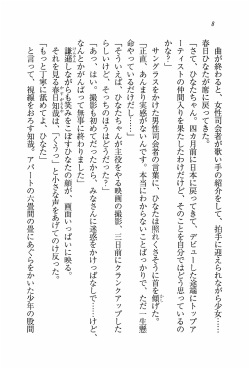 8
曲が終わると、女性司会者が歌い手の紹介をして、拍手に迎えられながら少女……
春日ひなたが席に戻ってきた。
「さて、ひなたちゃん。四カ月前に日本に戻ってきて、デビューした途端にトップア
ーティストの仲間入りを果たしたわけだけど、そのことを自分ではどう思っています
かな?」
サングラスをかけた男性司会者の言葉に、ひなたは照れくさそうに首を傾げた。
「正直、あんまり実感がないんです。本当にわからないことばっかりで、ただ一生懸
命やっているだけだし……」
「そういえば、ひなたちゃんが主役をやる映画の撮影、三日前にクランクアップした
らしいけど、そっちのほうはどうだった?」
「あっ、はい。撮影も初めてだったから、みなさんに迷惑かけっぱなしで……けど、
なんとかがんばって無事に終わりました」
謙遜しながらも笑みをこぼすひなたの顔が、画面いっぱいに映る。
それを見る春日知哉は、「くうっ」と小さく声をあげてのけ反った。
「もっと丁寧に舐めてよ、ひなた」
と言って、視線をおろす知哉。アパートの六畳間の畳にあぐらをかいた少年の股間